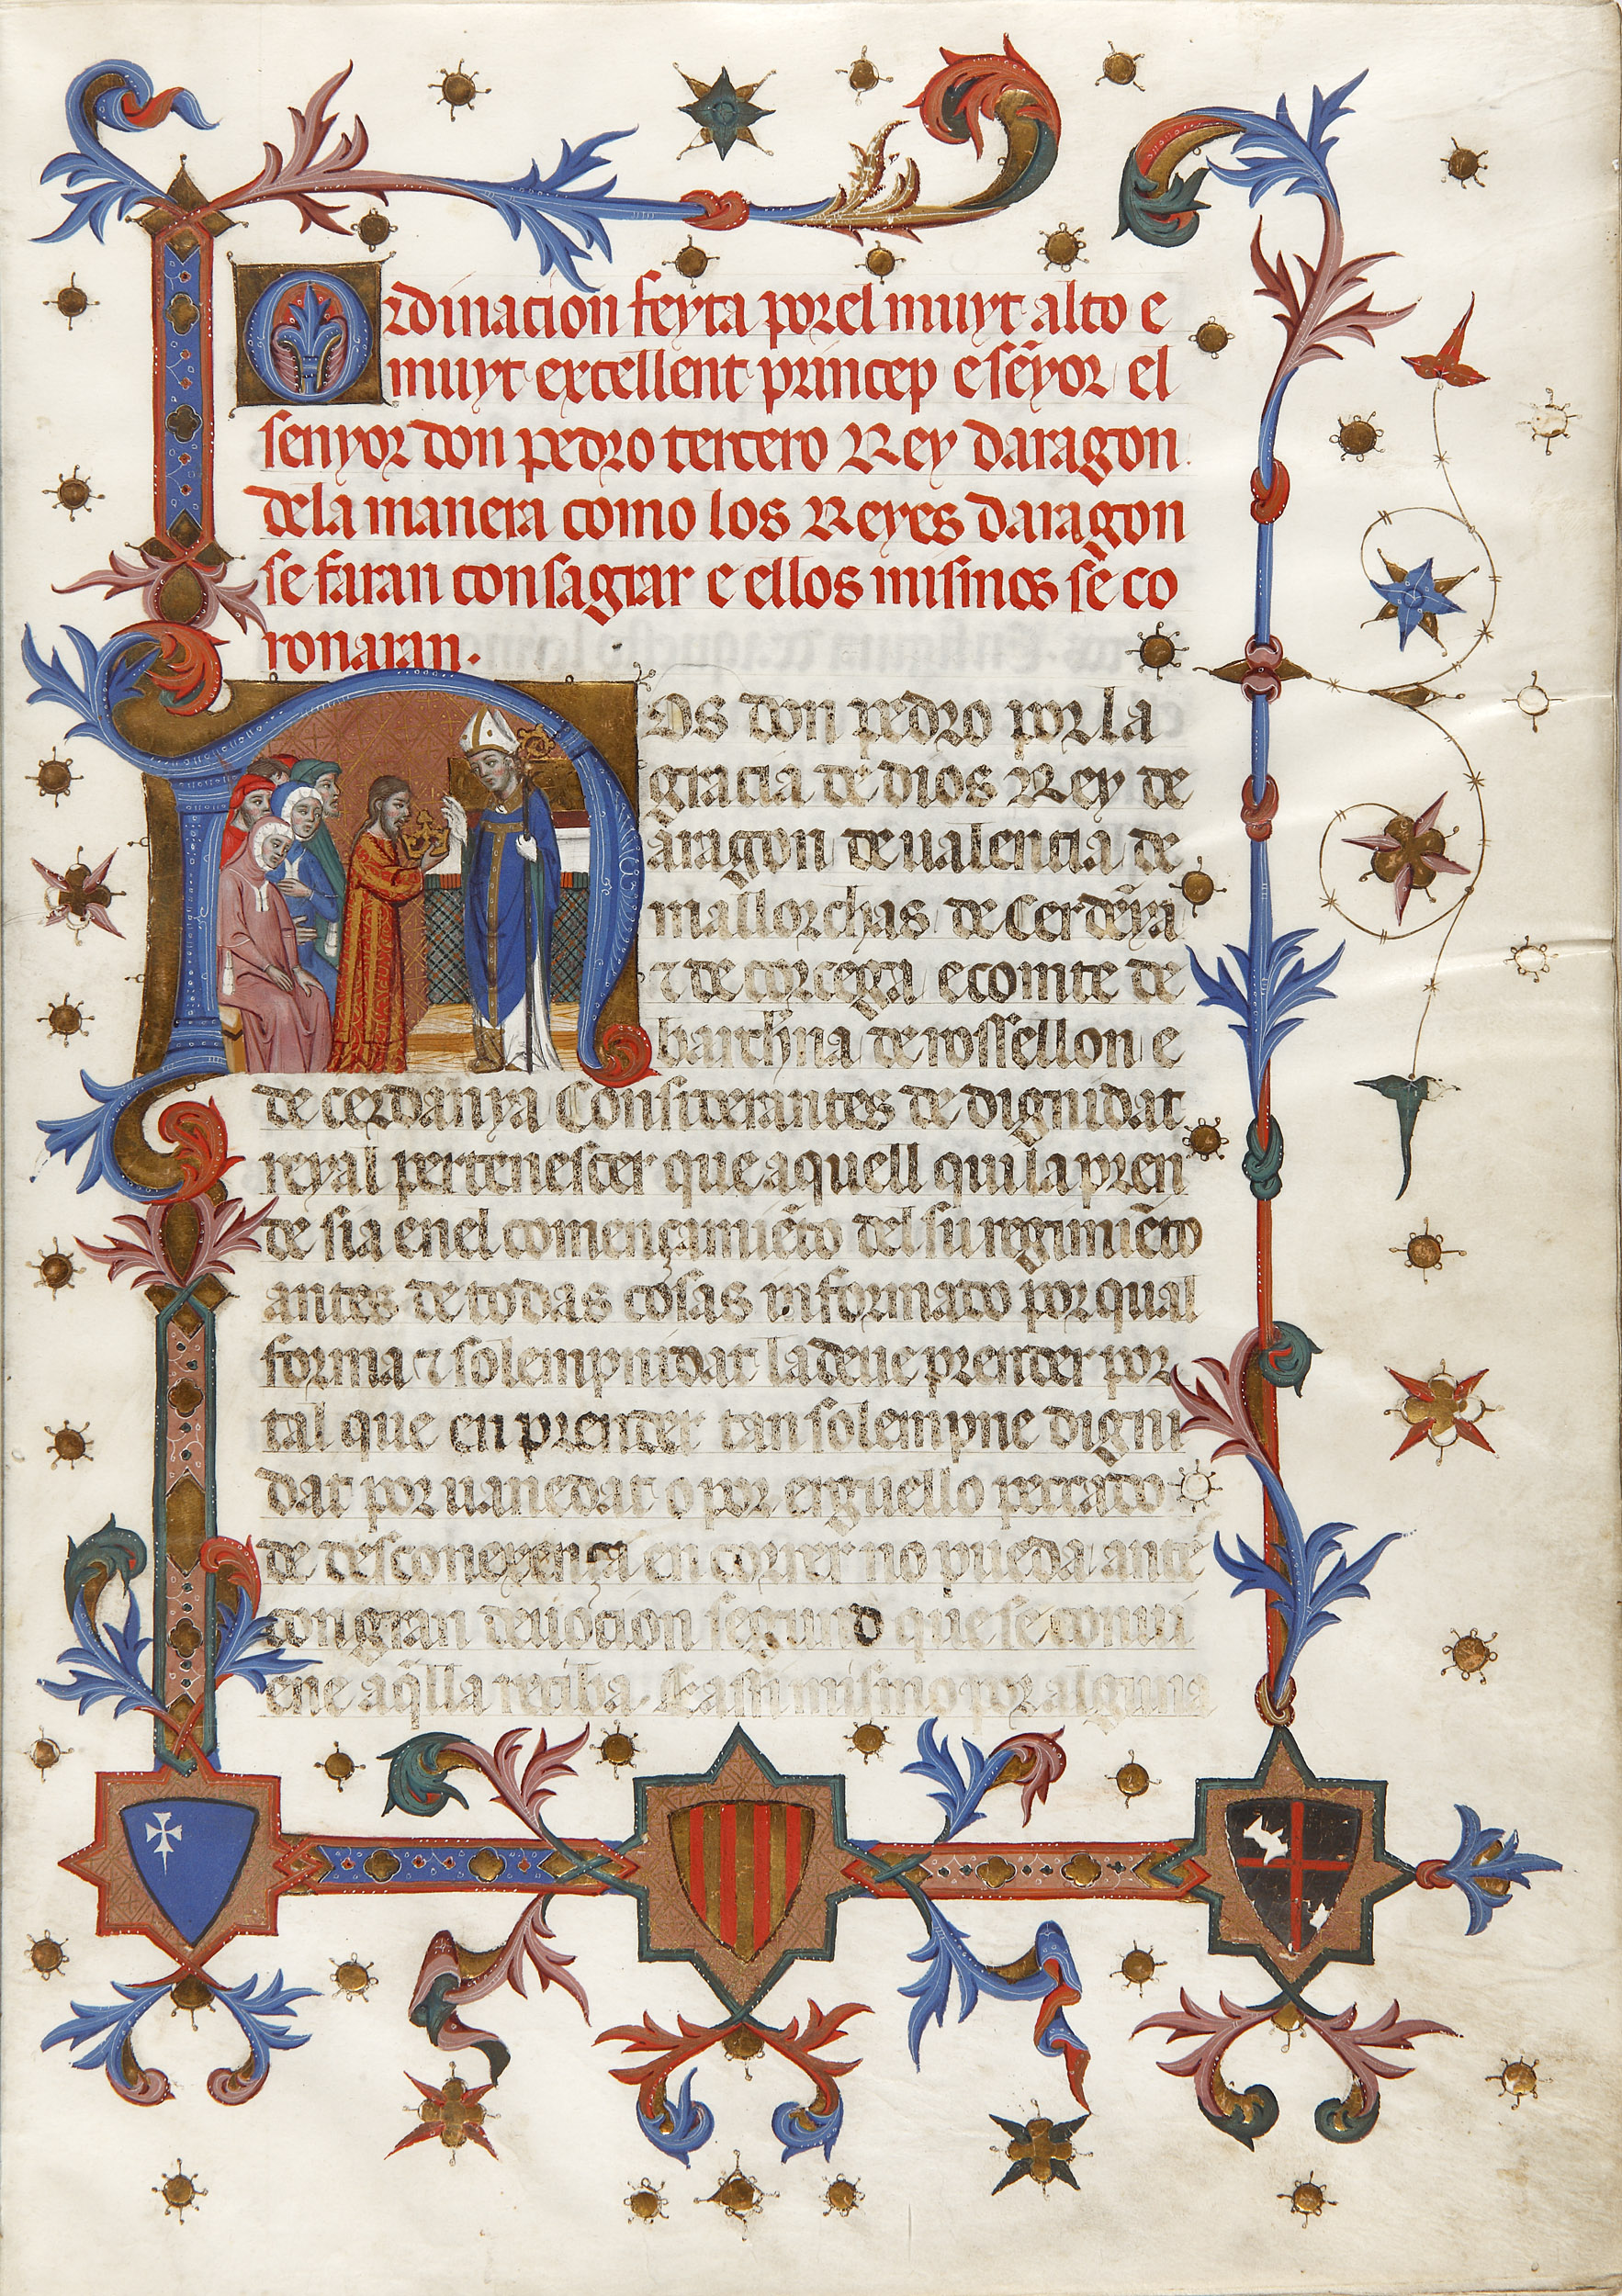 Ordinacion feyta por el muyt alto e
muyt excellent princep e sẽyor el
senyor don pedro tercero Rey daragon.
dela manera como los Reyes daragon
se faran consagrar e ellos mismos se co
ronaran.
Nos don pedro por la
gracia de dios Rey de
aragon de ualencia de
mallorchas de Cerdẽya
⁊ de corcega e comte de
barchña de rossellon e
de cerdanya Considerantes de dignidat
reyal pertenescer que aquell qui la pren
de sia en el començamiẽto del su regimiẽto
antes de todas cosas informado por qual
forma ⁊ solempnidat la deue prender por
tal que en prender tan solempne digni
dat por uanedat o por erguello peccado
de desconexença en correr no pueda ante
con gran deuocion segund que se conui
ene aq̃lla reciba. E assi mismo por alguna